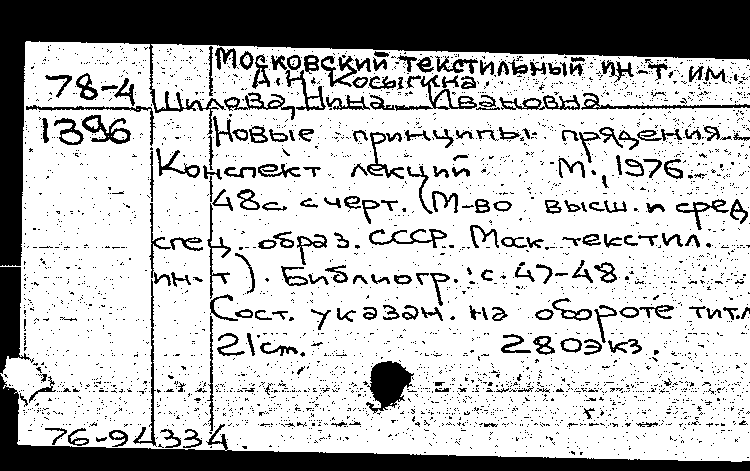 Московский текстильный ин-т. им.
А.Н. Косыгина.
78-4 Шилова, Нина Ивановна
1396 Новые принципы прядения
Конспект лекций. М., 1976.
48с. с черт. (М-во высш. и сред
спец. образ. СССР. Моск. текстил.
ин-т). Библиогр.: с. 47-48.
Сост. указан. на обороте тит.л
21см. 280экз.
76-94334.